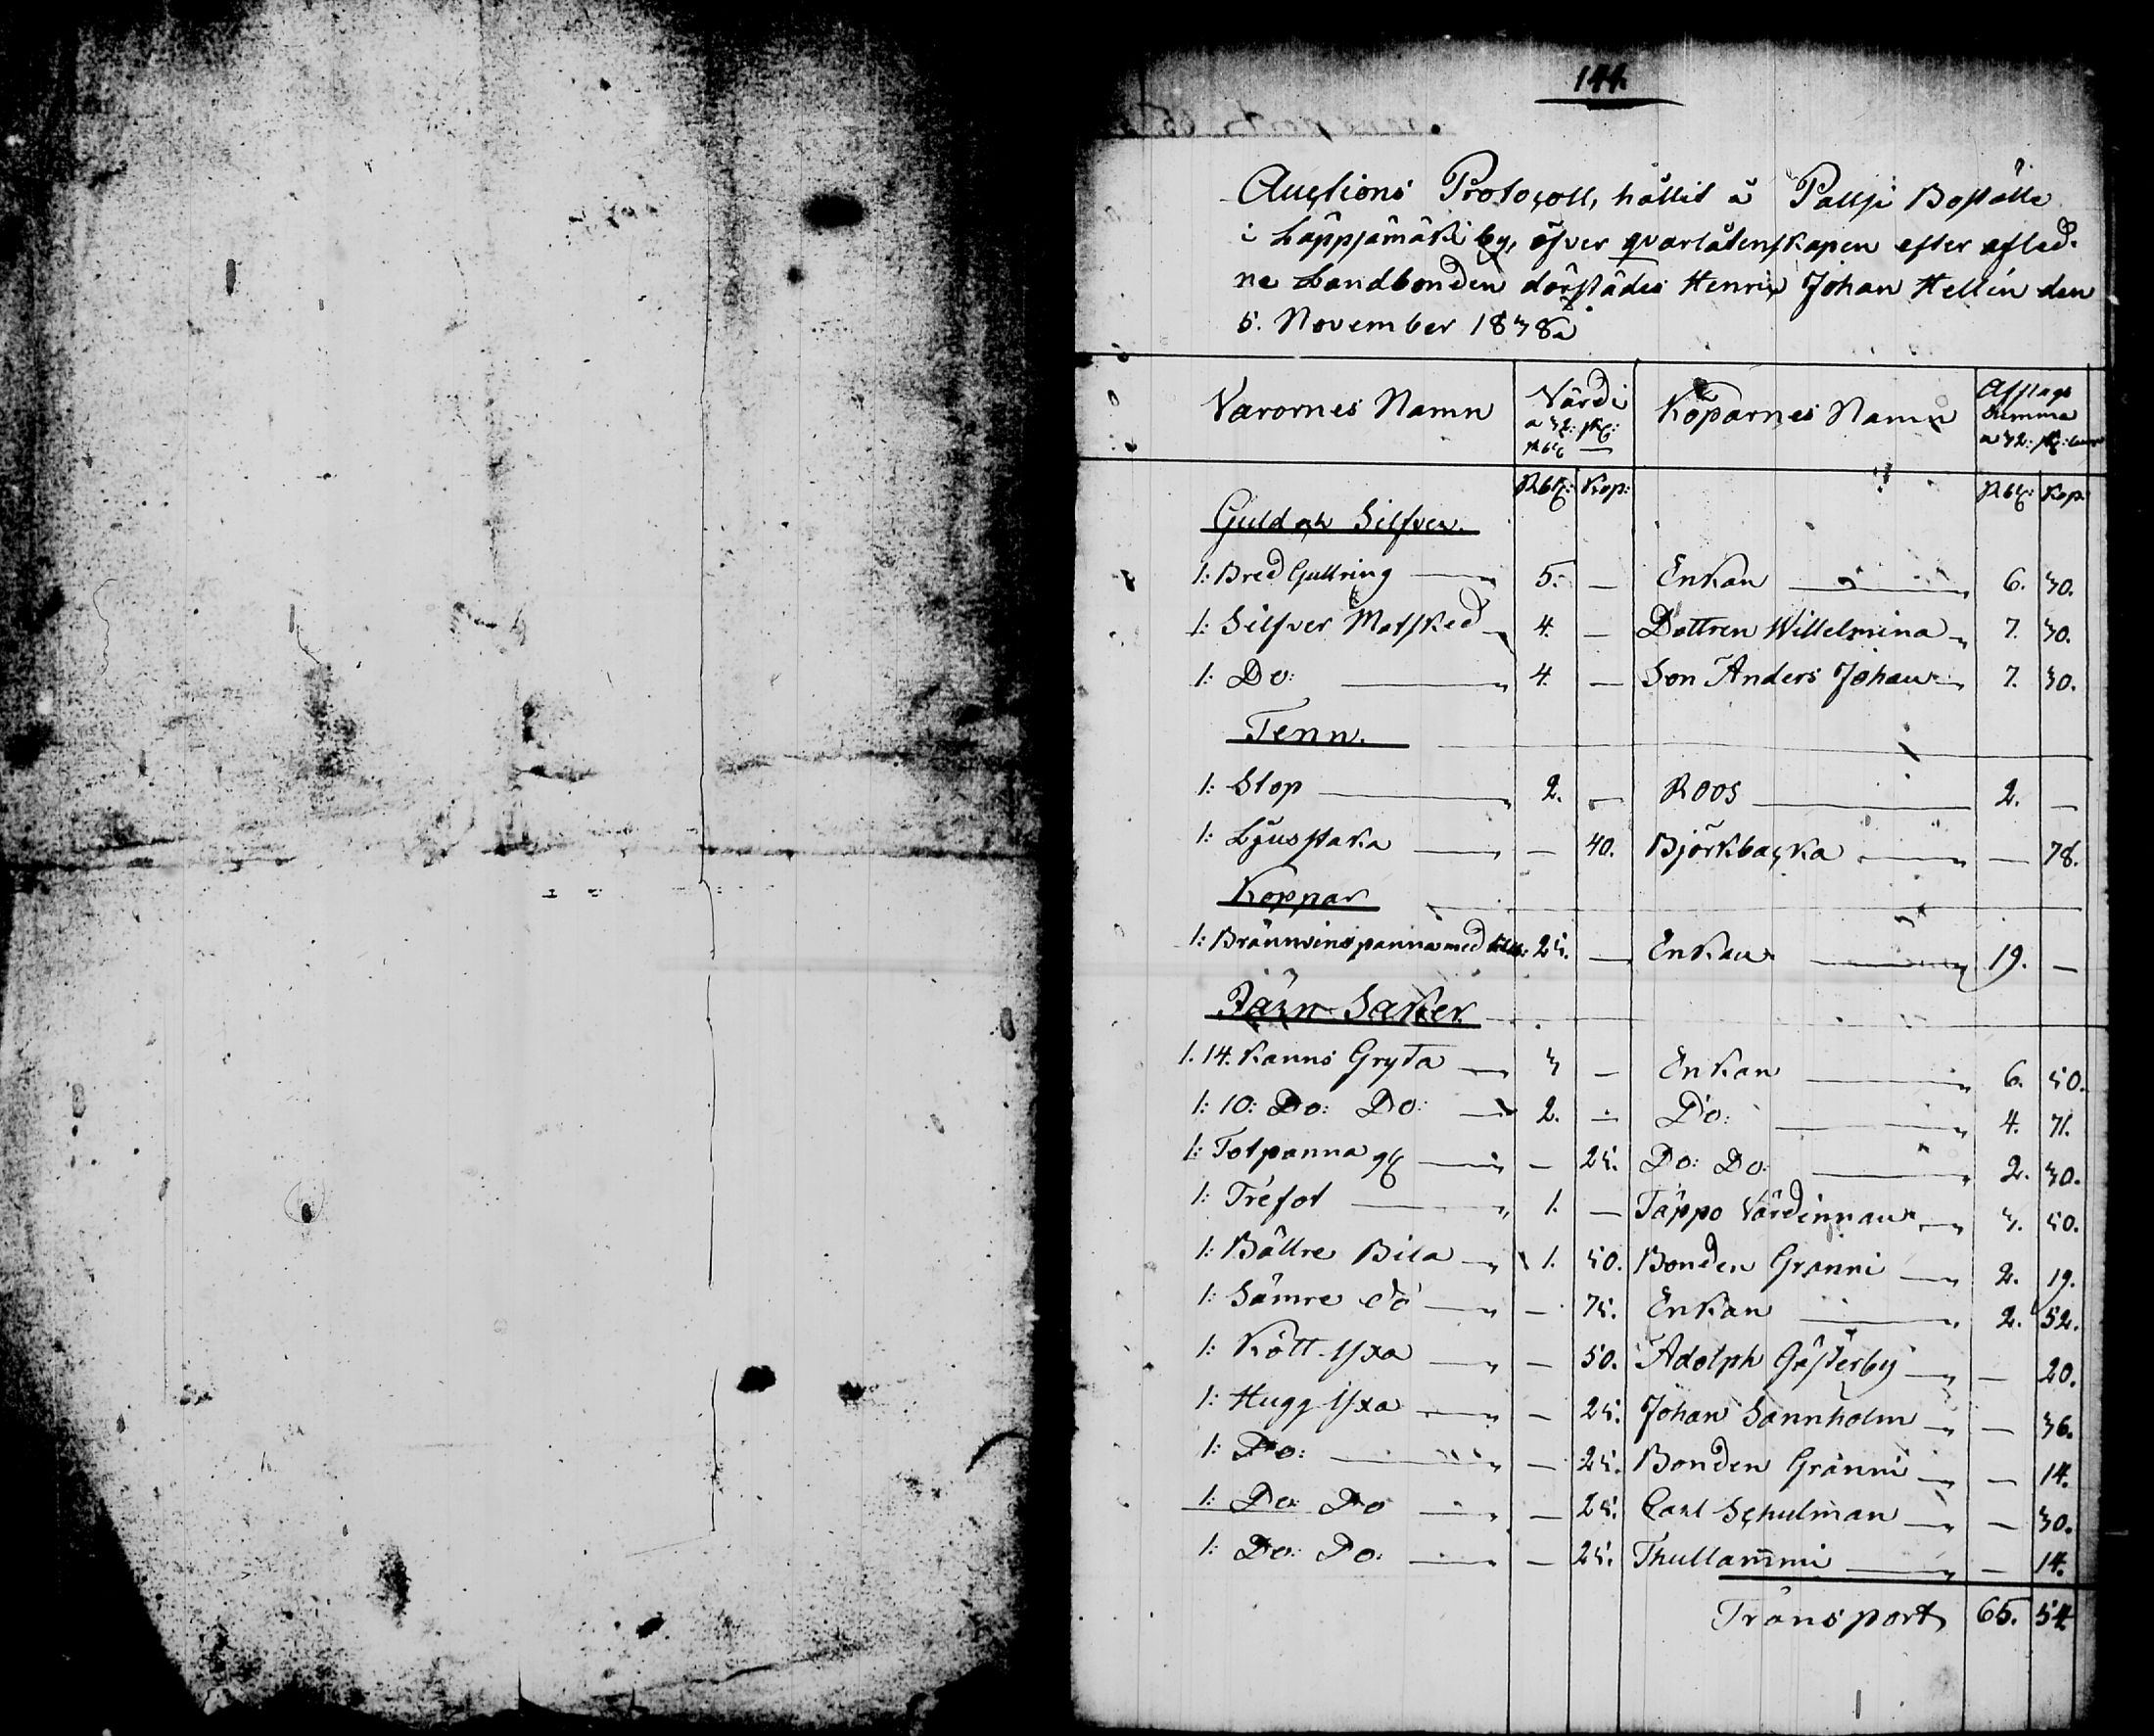 144.
Auctions Protocoll, hållit å Pallsi Boställe
i Läppjämäki by, öfver qvarlåtenskapen efter afled-
ne Landbonden därstädes Henric Johan Hellin den
5. November 1838
Varornes Namn Värde Köparnes Namn Afslags Summa
Rbl: Kop: Rbl: Kop:
Guld och Silfver.
1: Bred Gullring — 5. — Enkan — 6. 30.
1: Silfver Matsked — 4. — Dottren Willelmina — 7. 30.
1: Do: — 4. — Son Anders Johan — 7. 30.
Tenn.
1: Stop — 2. — Roos — 2. —
1: Ljusstaka — — 40. Björkbacka — — 78.
Koppar
1: Brännvinspanna med 25. — Enkan — 19. —
Järn Saker
1. 14. Kanns Gryta — 3 — Enkan — 6. 50.
1: 10: Do: Do: — 2. — Do: — 4. 71.
1: Totpanna — — 25. Do: Do: — 2. 30.
1: Trefot — 1. — Täppo Värdinnan — 3. 50.
1: Bättre Bila — 1. 50. Bonden Gränni — 2. 19.
1: Sämre do — — 75. Enkan — 2. 52.
1: Kött-Yxa — — 50. Adolph Gästerby — — 20.
1: Hugg Yxa — — 25. Johan Sannholm — — 36.
1: Do: — — 25. Bonden Gränni — — 14.
1: Do: Do — — 25. Carl Schulman — — 30.
1: Do: Do: — — 25. Thullammi — — 14.
Transport 65. 54